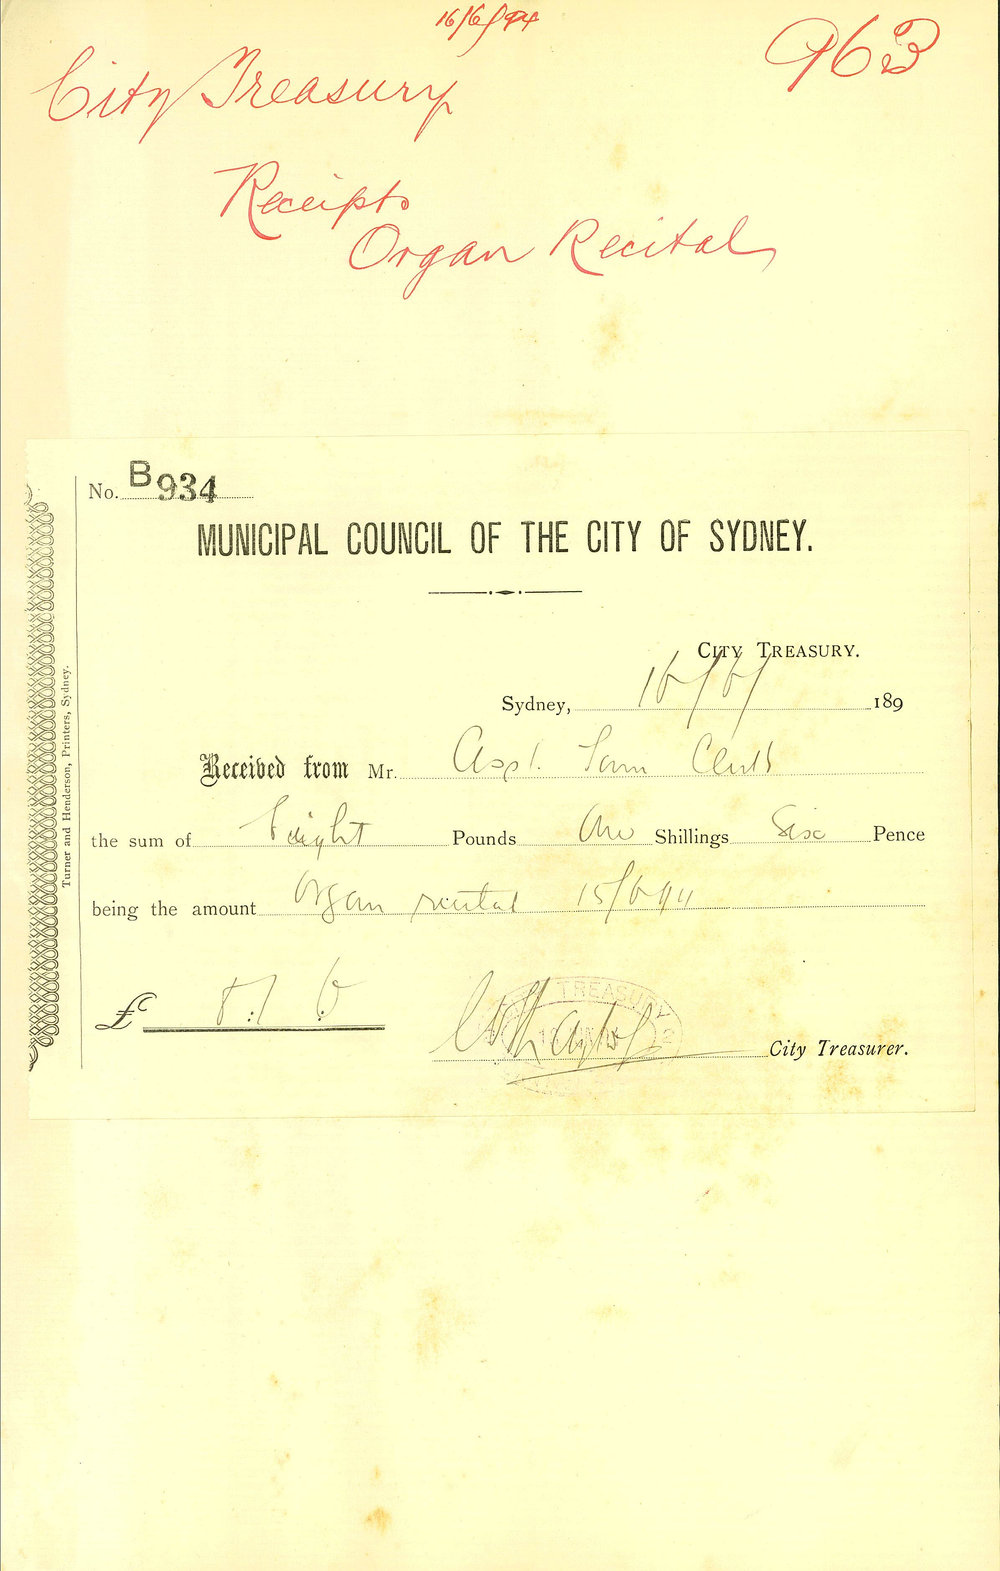 16/6/94
963
City Treasury
Receipts
Organ Recital
No. B934
MUNICIPAL COUNCIL OF THE CITY OF SYDNEY.
CITY TREASURY.
Sydney, 16/6/ 189
Received from Mr. Asst. Town Clerk
the sum of Eight Pounds One Shillings Six Pence
being the amount Organ recital 15/6/94
£ 8:1:6
TREASURY
City Treasurer.
Turner and Henderson, Printers, Sydney.